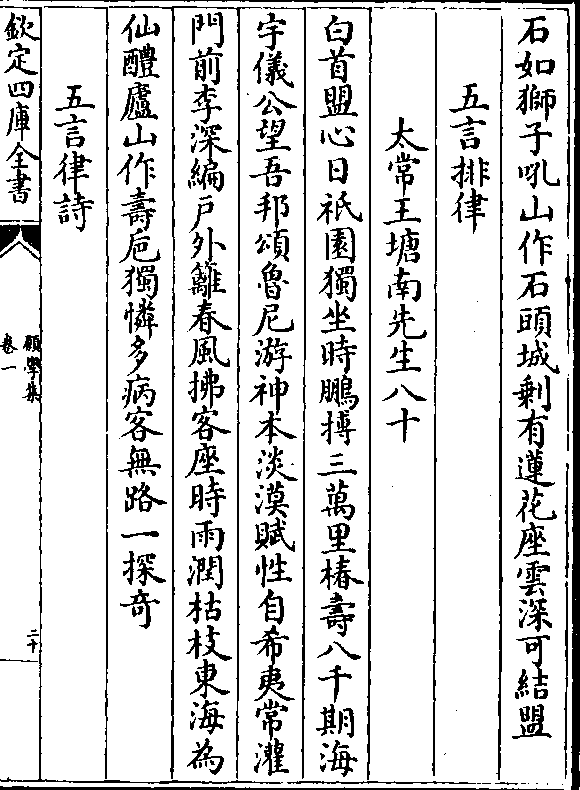 石如獅子吼山作石頭城剩有蓮花座雲深可結盟
五言排律
太常王塘南先生八十
白首盟心日祇園獨坐時鵬摶三萬里椿壽八千期海
宇儀公望吾邦頌魯尼游神本淡漠賦性自希夷常灌
門前李深編戶外籬春風拂客座時雨潤枯枝東海為
仙醴廬山作壽卮獨憐多病客無路一探奇
五言律詩
欽定四庫全書
願學集
卷一
二十